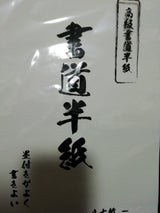 高級書道半紙
書道半紙
墨付きがよく
書きよい